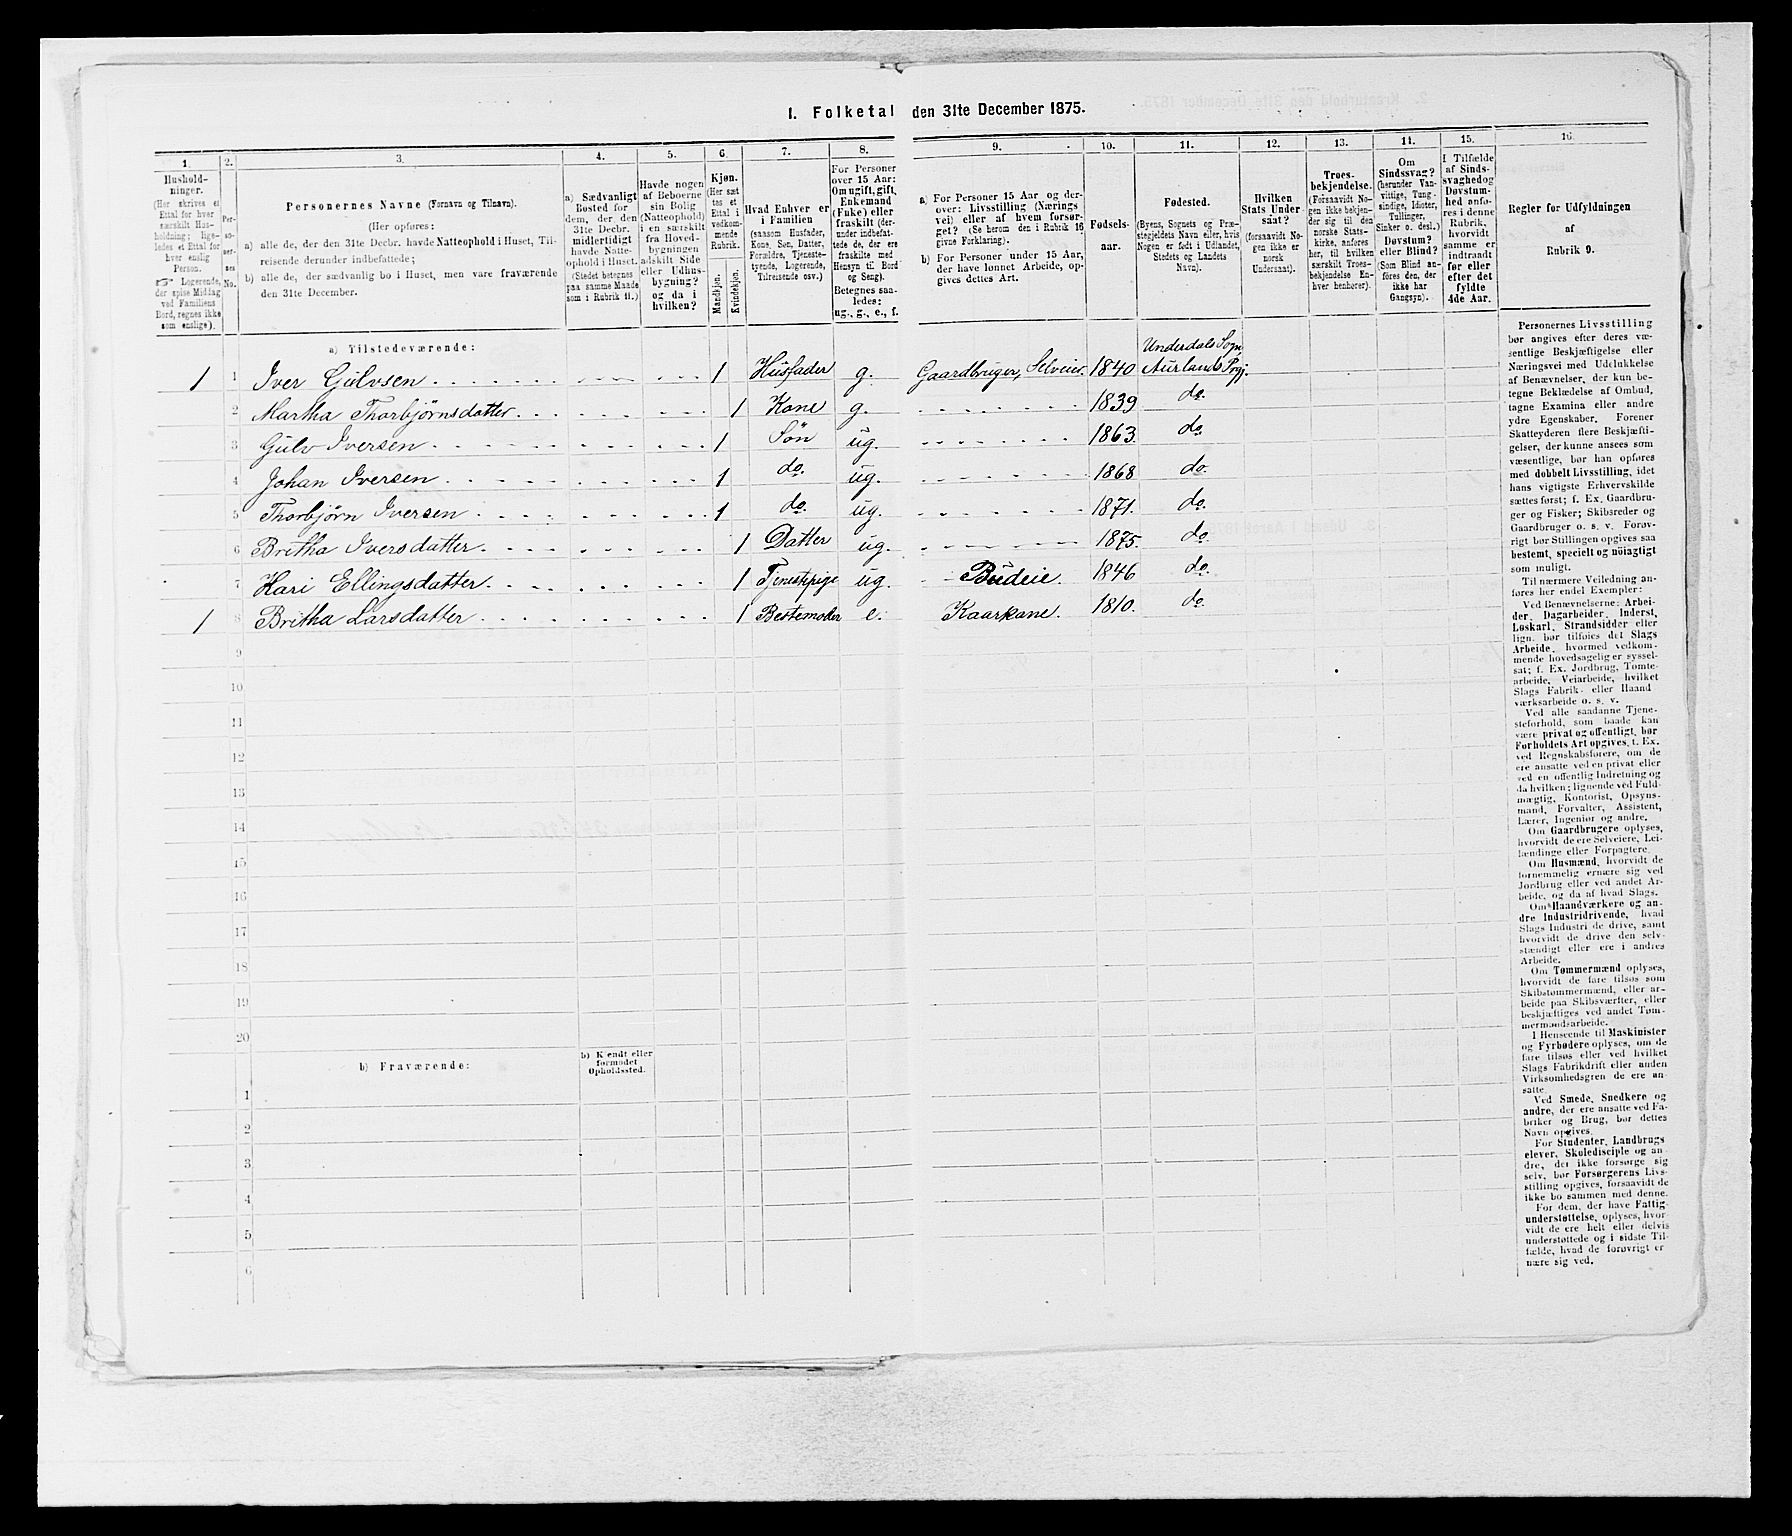 1. Folketal den 31te December 1875.
1. 2. 3. 4. 5. 6. 7. 8. 9. 10. 11. 12. 13. 14. 15. 16.
Hushold-
ninger.
(Her skrives et
Ettal for hver
særskilt Hus-
holdning; lige-
ledes et Ettal for
hver enslig
Person.
☞ Logerende,
der spise Middag
ved Familiens
Bord, regnes ikke
som enslige).
Per-
so-
ner-
nes
No.
Personernes Navne (Fornavn og Tilnavn).
(Her opføres:
a) alle de, der den 31te Decbr. havde Natteophold i Huset, Til-
reisende derunder indbefattede;
b) alle de, der sædvanlig bo i Huset, men vare fraværende
den 31te December.
a) Sædvanligt
Bosted for
dem, der den
31te Decbr.
midlertidigt
havde Natte-
ophold i Huset.
(Stedet betegnes
paa samme Maade
som i Rubrik 11.)
Havde nogen
af Beboerne
sin Bolig
(Natteophold)
i en særskilt
fra Hoved-
bygningen
adskilt Side
eller Udhus-
bygning?
og da i
hvilken?
Kjøn.
(Her sæt
tes et
Ettal i
vedkom-
mende
Rubrik.
Mandkjøn.
Kvindekjøn.
Hvad Enhver er
i Familien
(saasom Husfader,
Kone, Søn, Datter,
Forældre, Tjeneste-
tyende, Logerende,
Tilreisende osv.)
For Personer
over 15 Aar:
Om ugift, gift,
Enkemand
(Enke) eller
fraskilt (der-
under indbefat-
tede de, der ere
fraskilte med
Hensyn til Bord
og Seng).
Betegnes saa-
ledes:
ug., g., e., f.
a) For Personer 15 Aar og der-
over: Livsstilling (Nærings
vei) eller af hvem forsør-
get? (Se herom den i Rubrik 16
givne Forklaring).
b) For Personer under 15 Aar,
der have lønnet Arbeide, op-
gives dettes Art.
Fødsels-
aar.
Fødested.
(Byens, Sognets og Præ-
stegjeldets Navn eller, hvis
Nogen er født i Udlandet,
Stedets og Landets
Navn).
Hvilken
Stats Under
saat?
(forsaavidt No-
gen ikke er
norsk
Undersaat).
Troes-
bekjendelse.
(Forsaavidt No-
gen ikke bekjen-
der sig til den
norske Stats-
kirke, anføres
her, til hvilken
særskilt Troes-
bekjendelse En-
hver henhører).
Om
Sindssvag?
(herunder Van-
vittige, Tung-
sindige, Idioter,
Tullinger,
Sinker o. desl.)
Døvstum?
eller Blind?
(Som Blind an-
føres den, der
ikke har
Gangsyn).
I Tilfælde
af Sinds-
svaghed og
Døvstum-
hed anfø-
res i denne
Rubrik,
hvorvidt
samme er
indtraadt
før eller
efter det
fyldte
4de Aar.
Regler for Udfyldningen
af
Rubrik 9.
a) Tilstedeværende:
Underdals Sogn,
1 1 Iver Gulvsen 1 Husfader g. Gaardbruger, Selveier 1840 Aurlands Prgj.
2 Martha Thorbjørnsdatter 1 Kone g. 1839 do.
3 Gulv Iversen 1 Søn ug. 1863. do
4 Johan Iversen 1 do. ug. 1868 do.
5 Thorbjørn Iversen 1 do. ug. 1871. do.
6 Britha Iversdatter. 1 Datter ug. 1875. do.
7 Kari Ellingsdatter. 1 Tjenestpige ug. Budeie. 1846 do.
1 8 Britha Larsdatter 1 Bestemoder e. Kaarkone. 1810. do.
9
10
11
12
13
14
15
16
17
18
19
20
b) Fraværende:
b) Kjendt eller
formodet
Opholdssted.
1
2
3
4
5
6
Personernes Livsstilling
bør angives efter deres væ-
sentlige Beskjæftigelse eller
Næringsvei med Udelukkelse
af Benævnelser, der kun be-
tegne Beklædelse af Ombud,
tagne Examina eller andre
ydre Egenskaber. Forener
Skatteyderen flere Beskjæfti-
gelser, der kunne ansees som
væsentlige, bør han opføres
med dobbelt Livsstilling, idet
hans vigtigste Erhvervskilde
sættes først; f. Ex. Gaardbru-
ger og Fisker; Skibsreder og
Gaardbruger o. s. v. Forøv-
rigt bør Stillingen opgives saa
bestemt, specielt og nöiagtigt
som muligt.
Til nærmere Veiledning an-
føres her endel Exempler:
Ved Benævnelserne: Arbei-
der, Dagarbeider, Inderst,
Løskarl, Strandsidder eller
lign. bør tilføies det Slags
Arbeide, hvormed vedkom-
mende hovedsagelig er syssel-
sat; f. Ex. Jordbrug, Tømte-
arbeide, Veiarbeide, hvilket
Slags Fabrik- eller Haand
værksarbeide o. s. v.
Ved alle saadanne Tjene-
steforhold, som baade kan
være privat og offentligt, bør
Forholdets Art opgives, f. Ex.
ved Regnskabsførere, om de
ere ansatte ved en privat eller
ved en offentlig Indretning og
da hvilken; lignende ved Fuld-
mægtig, Kontorist, Opsyns-
mand, Forvalter, Assistent,
Lærer, Ingeniør og andre.
Om Gaardbrugere oplyses,
hvorvidt de ere Selveiere, Lei-
lændinge eller Forpagtere.
Om Husmænd, hvorvidt de
fornemmelig ernære sig ved
Jordbrug eller ved andet Ar-
beide, og da af hvad Slags.
Om Haandværkere og an-
dre Industridrivende, hvad
Slags Industri de drive, samt
hvorvidt de drive den selv-
stændigt eller ere i andres
Arbeide.
Om Tømmermænd oplyses,
hvorvidt de fare tilsøs som
Skibstømmermænd, eller ar-
beide paa Skibsværfter, eller
beskjæftiges ved andet Tøm-
mermandsarbeide.
I Henseende til Maskinister
og Fyrbødere oplyses, om de
fare tilsøs eller ved hvilket
Slags Fabrikdrift eller anden
Virksomhedsgren de ere an-
satte.
Ved Smede, Snedkere og
andre, der ere ansatte ved Fa-
briker og Brug, bør dettes
Navn opgives.
For Studenter, Landbrugs
elever, Skoledisciple og an
dre, der ikke forsørge sig
selv, bør Forsørgerens Livs-
stilling opgives, forsaavidt de
ikke bo sammen med denne.
For dem, der have Fattig-
understøttelse, oplyses, hvor-
vidt de ere helt eller delvis
understøttede og i sidste Til-
fælde, hvad de forøvrigt er
nære sig ved.